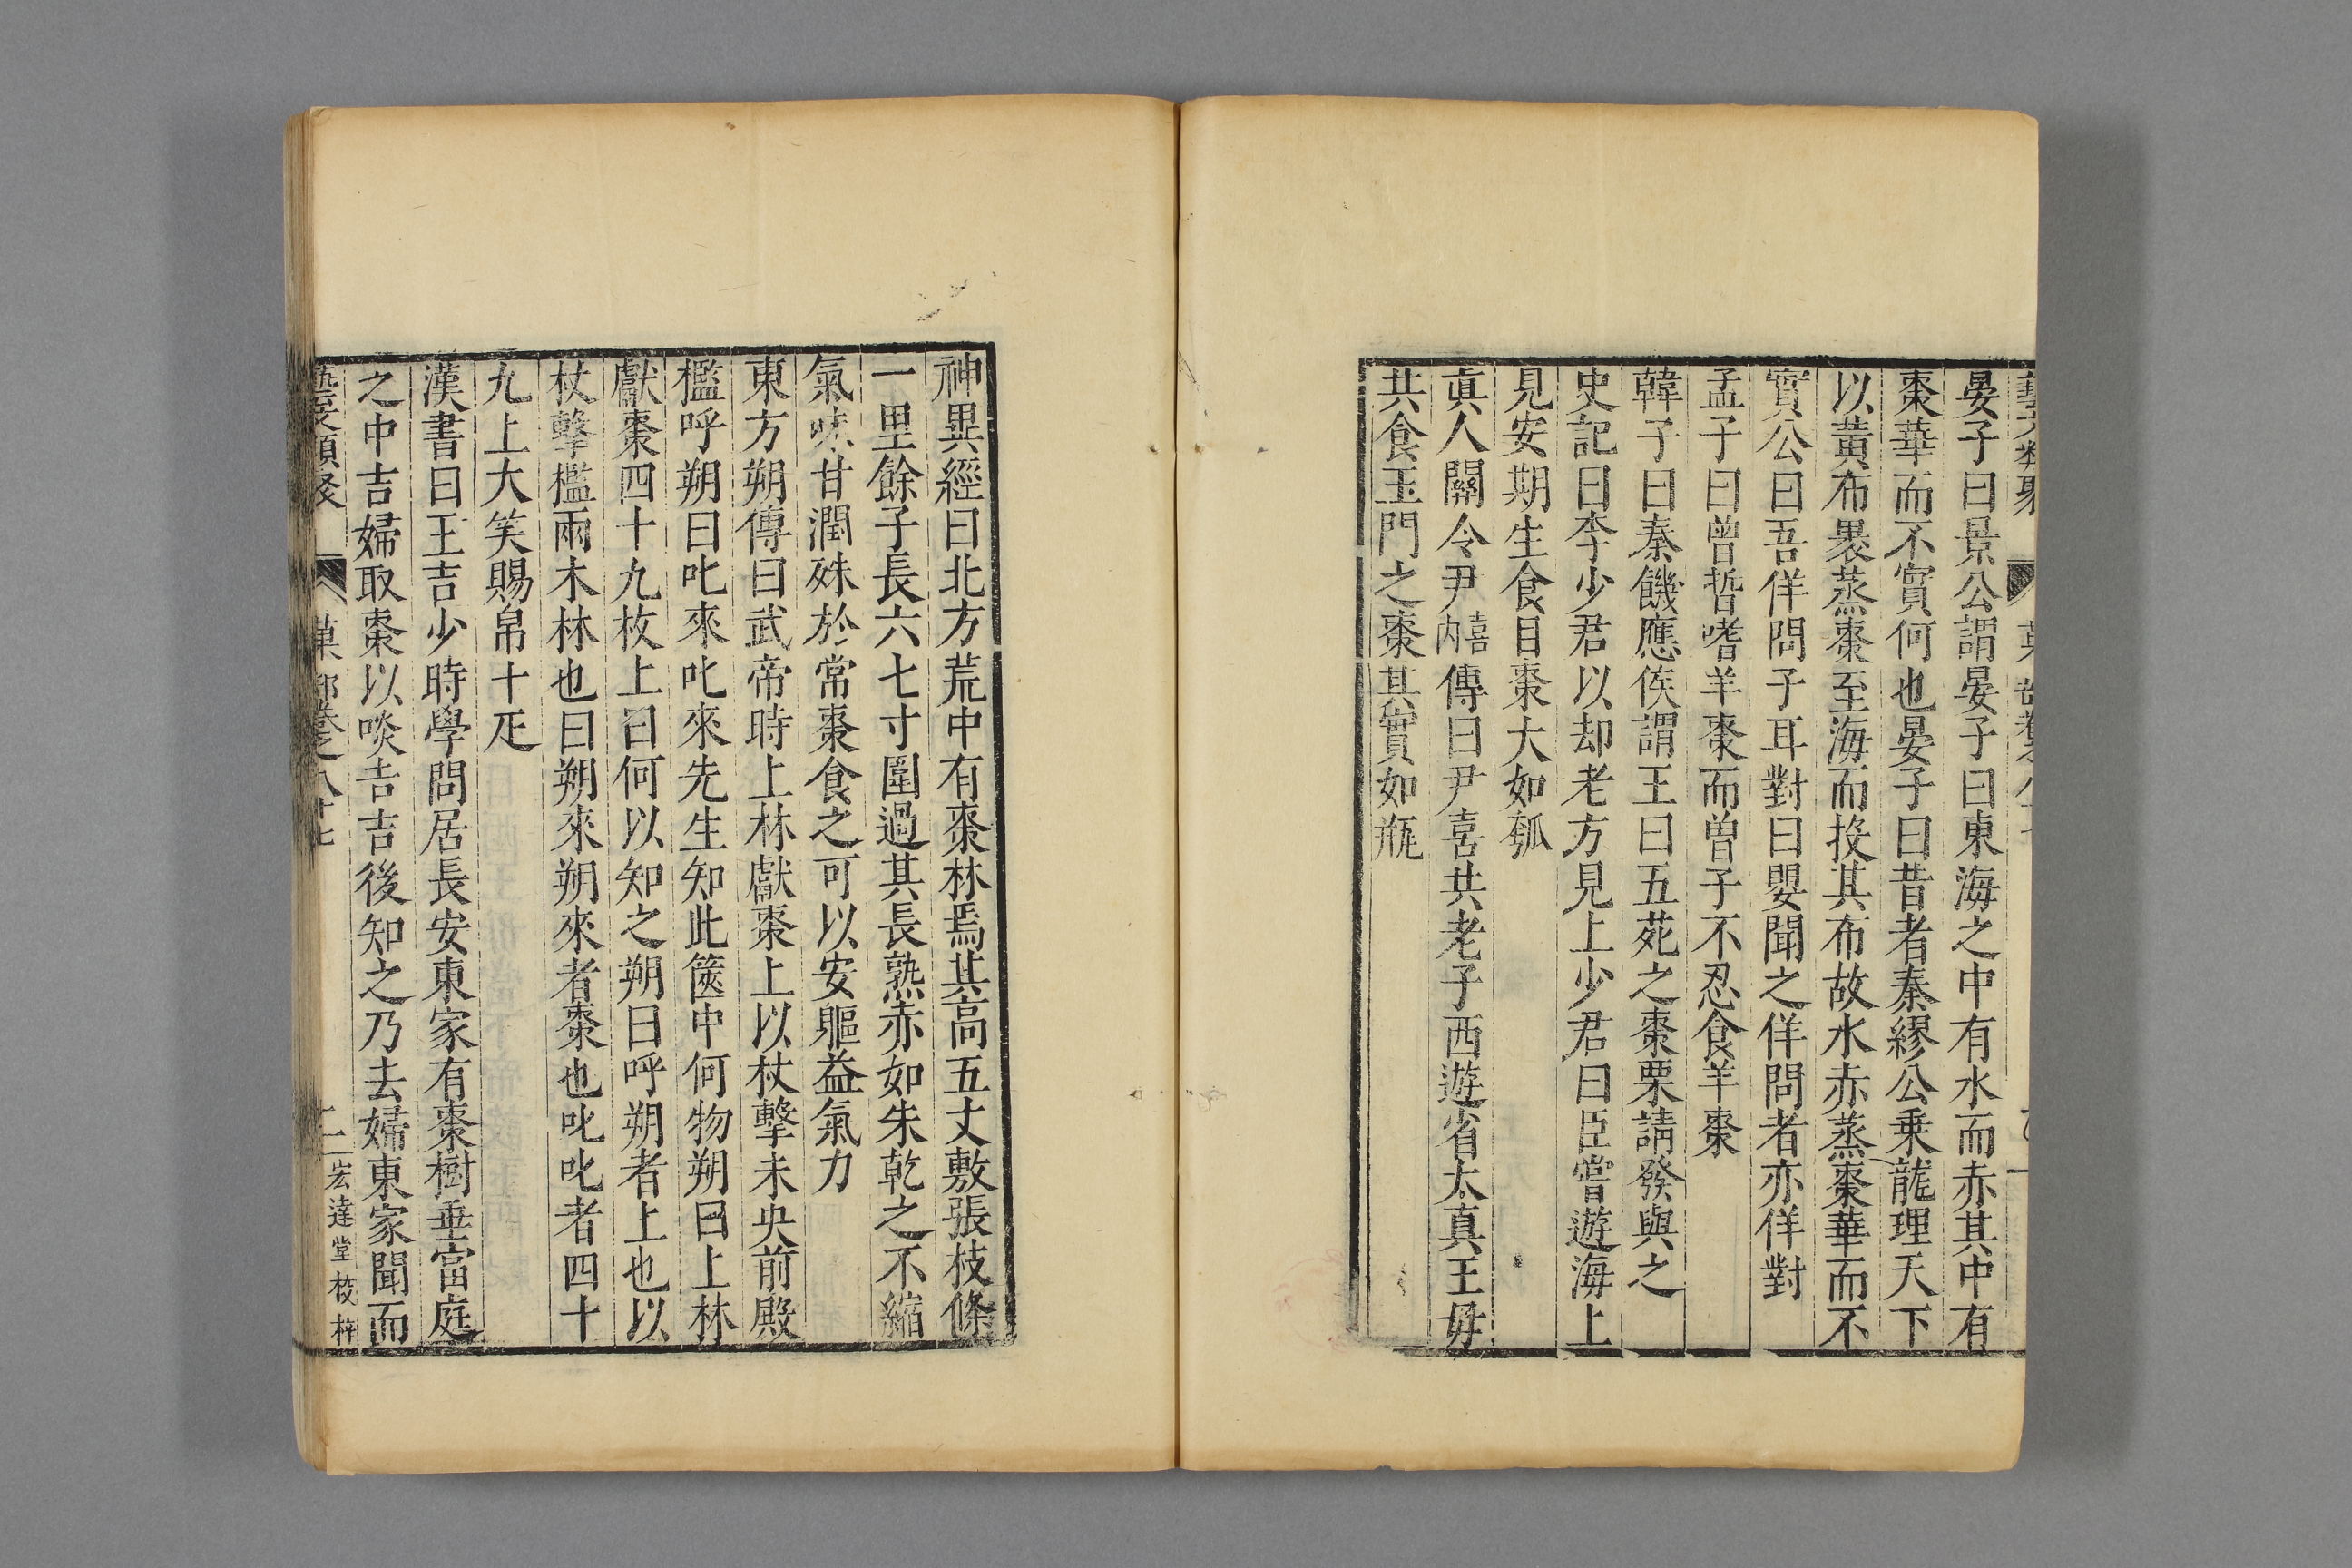 藝文類聚 菓部卷之八十七
晏子曰景公謂晏子曰東海之中有水而赤其中有
棗華而不實何也晏子曰昔者秦繆公乗龍理天下
以黃布褁蒸棗至海而投其布故水赤蒸棗華而不
實公曰吾佯問子耳對曰嬰聞之佯問者亦佯對
孟子曰曾晳嗜羊棗而曽子不忍食羊棗
韓子曰秦饑應侯謂王曰五苑之棗栗請發與之
史記曰李少君以却老方見上少君曰臣嘗遊海上
見安期生食目棗大如瓠
眞人關令尹喜內傳曰尹喜共老子西遊省太真王毋
共食玉門之棗其實如瓶
神異經曰北方荒中有棗林焉其高五丈敷張枝條
一里餘子長六七寸圍過其長熟赤如朱乾之不縮
氣味甘潤殊於常棗食之可以安軀益氣力
東方朔傳曰武帝時上林獻棗上以杖擊未央前殿
檻呼朔曰叱來叱來先生知此篋中何物朔曰上林
獻棗四十九枚上曰何以知之朔曰呼朔者上也以
杖擊檻兩木林也曰朔來朔來者棗也叱叱者四十
九上大笑賜帛十疋
漢書曰王吉少時學問居長安東家有棗樹垂富庭
之中吉婦取棗以啖吉吉後知之乃去婦東家聞而
藝文類聚 菓部卷之八十七 十二 宏達堂校梓